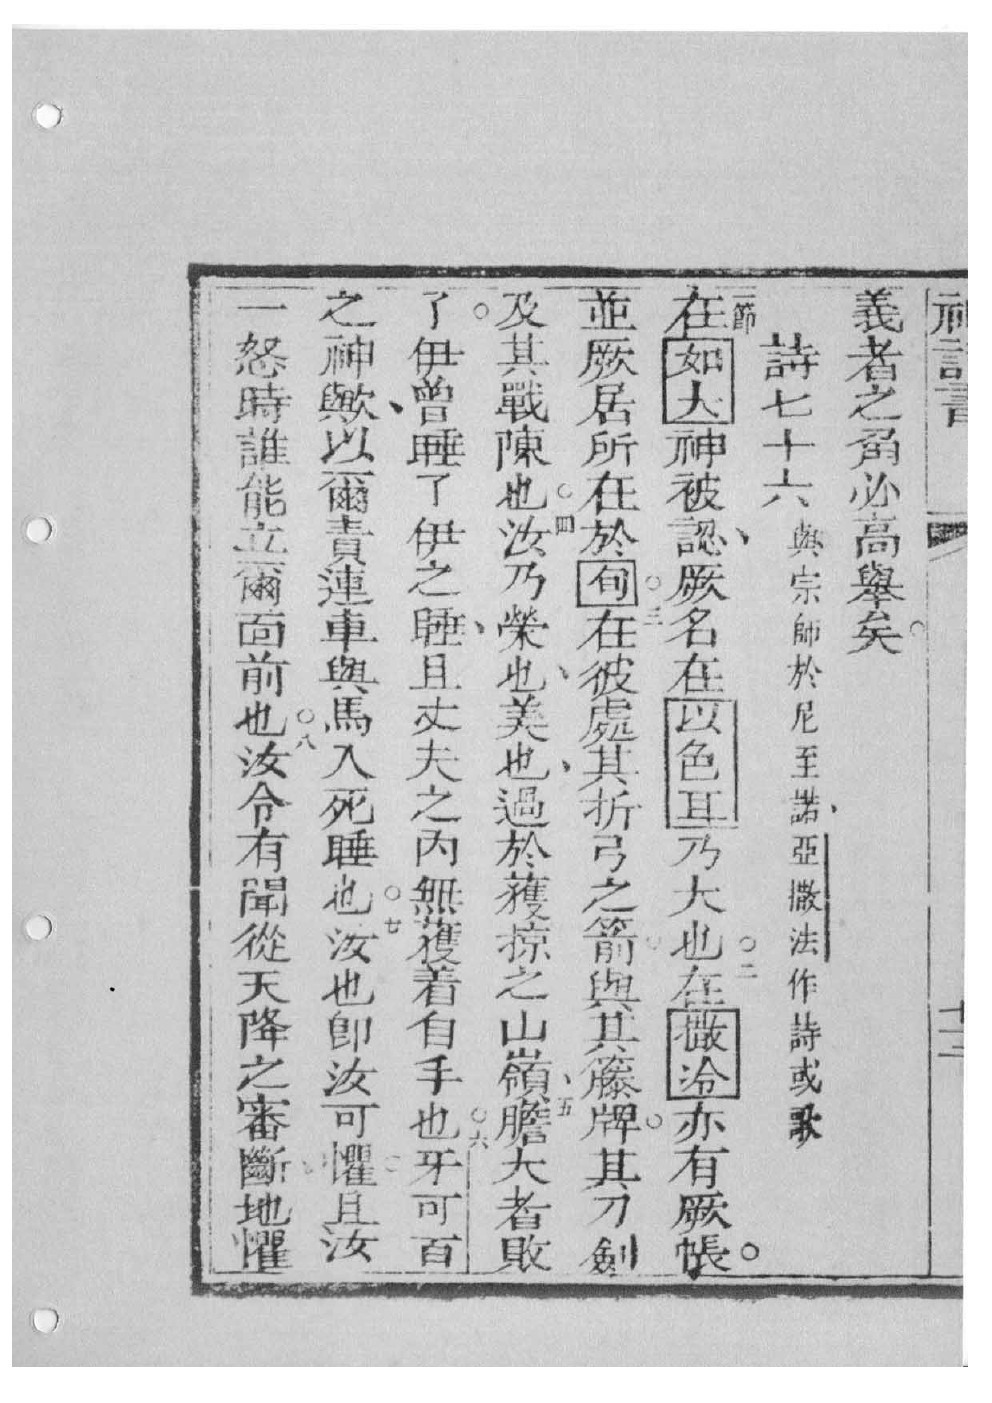 神詩書 十二
義者之角必高舉矣。
詩七十六 與宗師於尼至諾、亞撒法作詩或歌
一節 在如大神被認、厥名在以色耳乃大也。二在撒冷亦有厥帳。
並厥居所在於旬。三在彼處其折弓之箭與其籐牌。其刀劍
及其戰陳也。四汝乃榮也、美也、過於蒦掠之山嶺、五膽大者敗
了。伊曾睡了伊之睡、且丈夫之內無蒦着自手也。六牙可百
之神歟、以爾責連車與馬入死睡也。七汝也即汝可懼。且汝
一怒時誰能立爾面前也。八汝令有聞從天降之審斷、地懼